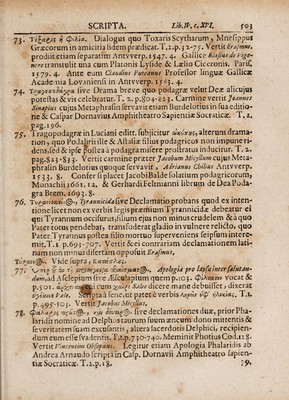 SCRIPTA. Lib. IV. c. XVI. 503
73. Τόξαρις ἢ Φιλία. Dialogus quo Toxaris Scytharum & Mnesippus
Græcorum in amicitia fidem prædicat. T. 2. p. 32-75. Vertit Erasmus,
prodiit etiam separatim Antvverp. 1547. 4. Gallice Blasius de Vige-
nere transtulit una cum Platonis Lyside & Lælio Ciceronis. Paris.
1579. 4. Ante eum Claudius
Academia Lovaniensi in Antvverp. 1563. 4.
74. sive Drama breve quo podagræ velut Deæ alicujus
potestas & vis celebratur. T. 2. p. 804-823. Carmine vertit Joannes
Sinapius cujus Metaphrasin servavit etiam Burdelotius in sua editio-
ne & Caspar Dornavius Amphitheatro Sapientiæ Socraticæ. T. 2.
pag. 196.
75. Tragopodagra in Luciani editt. subjicitur alterum drama-
tion, quo Podaliriille & Astasiæ filius podagricos non impune ri-
dens, sed & ipse postea a podagra misere prostratus inducitur. T. 2.
pag. 823-833. Vertit carmine præter Jacobum Micyllum cujus Meta-
phrasin Burdelotius quoque servavit. Adrianus Chilius Antvverp.
1533. 8. Confer si placet Jacobi Balde solatium podagricorum,
Monachii 1661. 12, & Gerhardi Feltmanni librum de Dea Poda-
gra Brem. 1693. 8.
76. Tyrannicida sive Declamatio probans quod ex inten-
tione licet non ex verbis legis præmium Tyrannicidæ debeatur ei
qui Tyrannum occisurus, filium ejus non minus crudelem & à quo
Pater totus pendebat, transfoderat gladio in vulnere relicto, quo
Pater Tyrannus postea filio mortuo superveniens seipsum interi-
mit. T. 1. p. 693-707. Vertit & ei contrariam declamationem lati-
nam non minus disertam opposuit Erasmus.
Vide supra,
77. Apologia pro lapsu inter salutan-
dum, ad Asclepium sive Æsculapium quem p. 503. vocat &
p. 501. cum χαίρειν Salve dicere mane debuisset, dixerat
ὑγίαινε Vale. Scripta à sene, ut patet è verbis T. 1.
p. 495-503. Vertit Jacobus Micyllus.
78. sive declamationes duæ, prior Pha-
laridi nomine ad Delphos taurum suum æneum dono mittentis &
severitatem suam excusantis, altera sacerdotis Delphici, recipien-
dum eum esse suadentis. T. 1. p. 730-740. Meminit Photius Cod. 128.
Vertit Vincentius Obsopæus. Legitur etiam Apologia Phalaridis ab
Andrea Arnaudo scripta in Casp. Dornavii Amphitheatro sapien-
tiæ Socraticæ. T. 2. p. 18. 79.